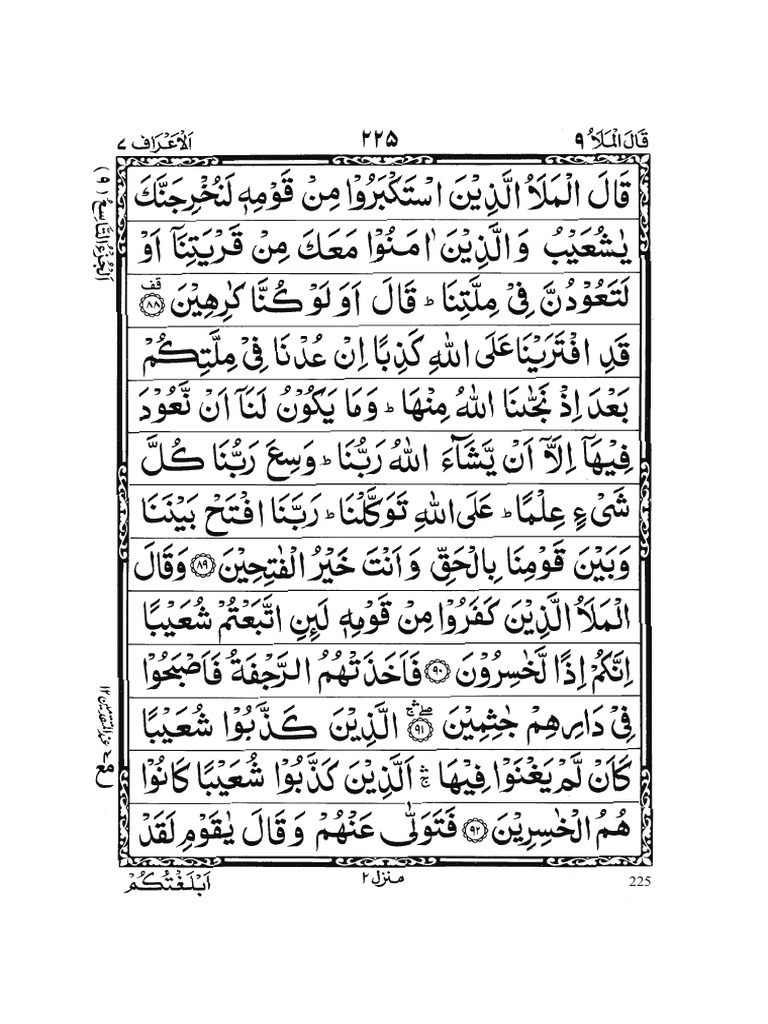 قَالَ الۡمَلَاُ ٩
٢٢٥
اَلۡاَعۡرَاف ٧
اَلۡجُزۡءُ التَّاسِعُ (٩)
قَالَ الۡمَلَاُ الَّذِيۡنَ اسۡتَكۡبَرُوۡا مِنۡ قَوۡمِهٖ لَنُخۡرِجَنَّكَ
يٰشُعَيۡبُ وَالَّذِيۡنَ اٰمَنُوۡا مَعَكَ مِنۡ قَرۡيَتِنَاۤ اَوۡ
لَتَعُوۡدُنَّ فِىۡ مِلَّتِنَا‌ ؕ قَالَ اَوَلَوۡ كُنَّا كٰرِهِيۡنَ ﴿٨٨﴾ قف
قَدِ افۡتَرَيۡنَا عَلَى اللّٰهِ كَذِبًا اِنۡ عُدۡنَا فِىۡ مِلَّتِكُمۡ
بَعۡدَ اِذۡ نَجّٰٮنَا اللّٰهُ مِنۡهَا‌ ؕ وَمَا يَكُوۡنُ لَنَاۤ اَنۡ نَّعُوۡدَ
فِيۡهَاۤ اِلَّاۤ اَنۡ يَّشَآءَ اللّٰهُ رَبُّنَا‌ ؕ وَسِعَ رَبُّنَا كُلَّ
شَىۡءٍ عِلۡمًا‌ ؕ عَلَى اللّٰهِ تَوَكَّلۡنَا‌ ؕ رَبَّنَا افۡتَحۡ بَيۡنَنَا
وَبَيۡنَ قَوۡمِنَا بِالۡحَقِّ وَاَنۡتَ خَيۡرُ الۡفٰتِحِيۡنَ ﴿٨٩﴾ وَقَالَ
الۡمَلَاُ الَّذِيۡنَ كَفَرُوۡا مِنۡ قَوۡمِهٖ لَٮِٕنِ اتَّبَعۡتُمۡ شُعَيۡبًا
اِنَّكُمۡ اِذًا لَّخٰسِرُوۡنَ ﴿٩٠﴾ فَاَخَذَتۡهُمُ الرَّجۡفَةُ فَاَصۡبَحُوۡا
فِىۡ دَارِهِمۡ جٰثِمِيۡنَ ﴿٩١﴾ الَّذِيۡنَ كَذَّبُوۡا شُعَيۡبًا
كَاَنۡ لَّمۡ يَغۡنَوۡا فِيۡهَا ‌ۛۚ اَلَّذِيۡنَ كَذَّبُوۡا شُعَيۡبًا كَانُوۡا
هُمُ الۡخٰسِرِيۡنَ ﴿٩٢﴾ فَتَوَلّٰى عَنۡهُمۡ وَقَالَ يٰقَوۡمِ لَقَدۡ
225
منزل ٢
اَبۡلَغۡتُكُمۡ